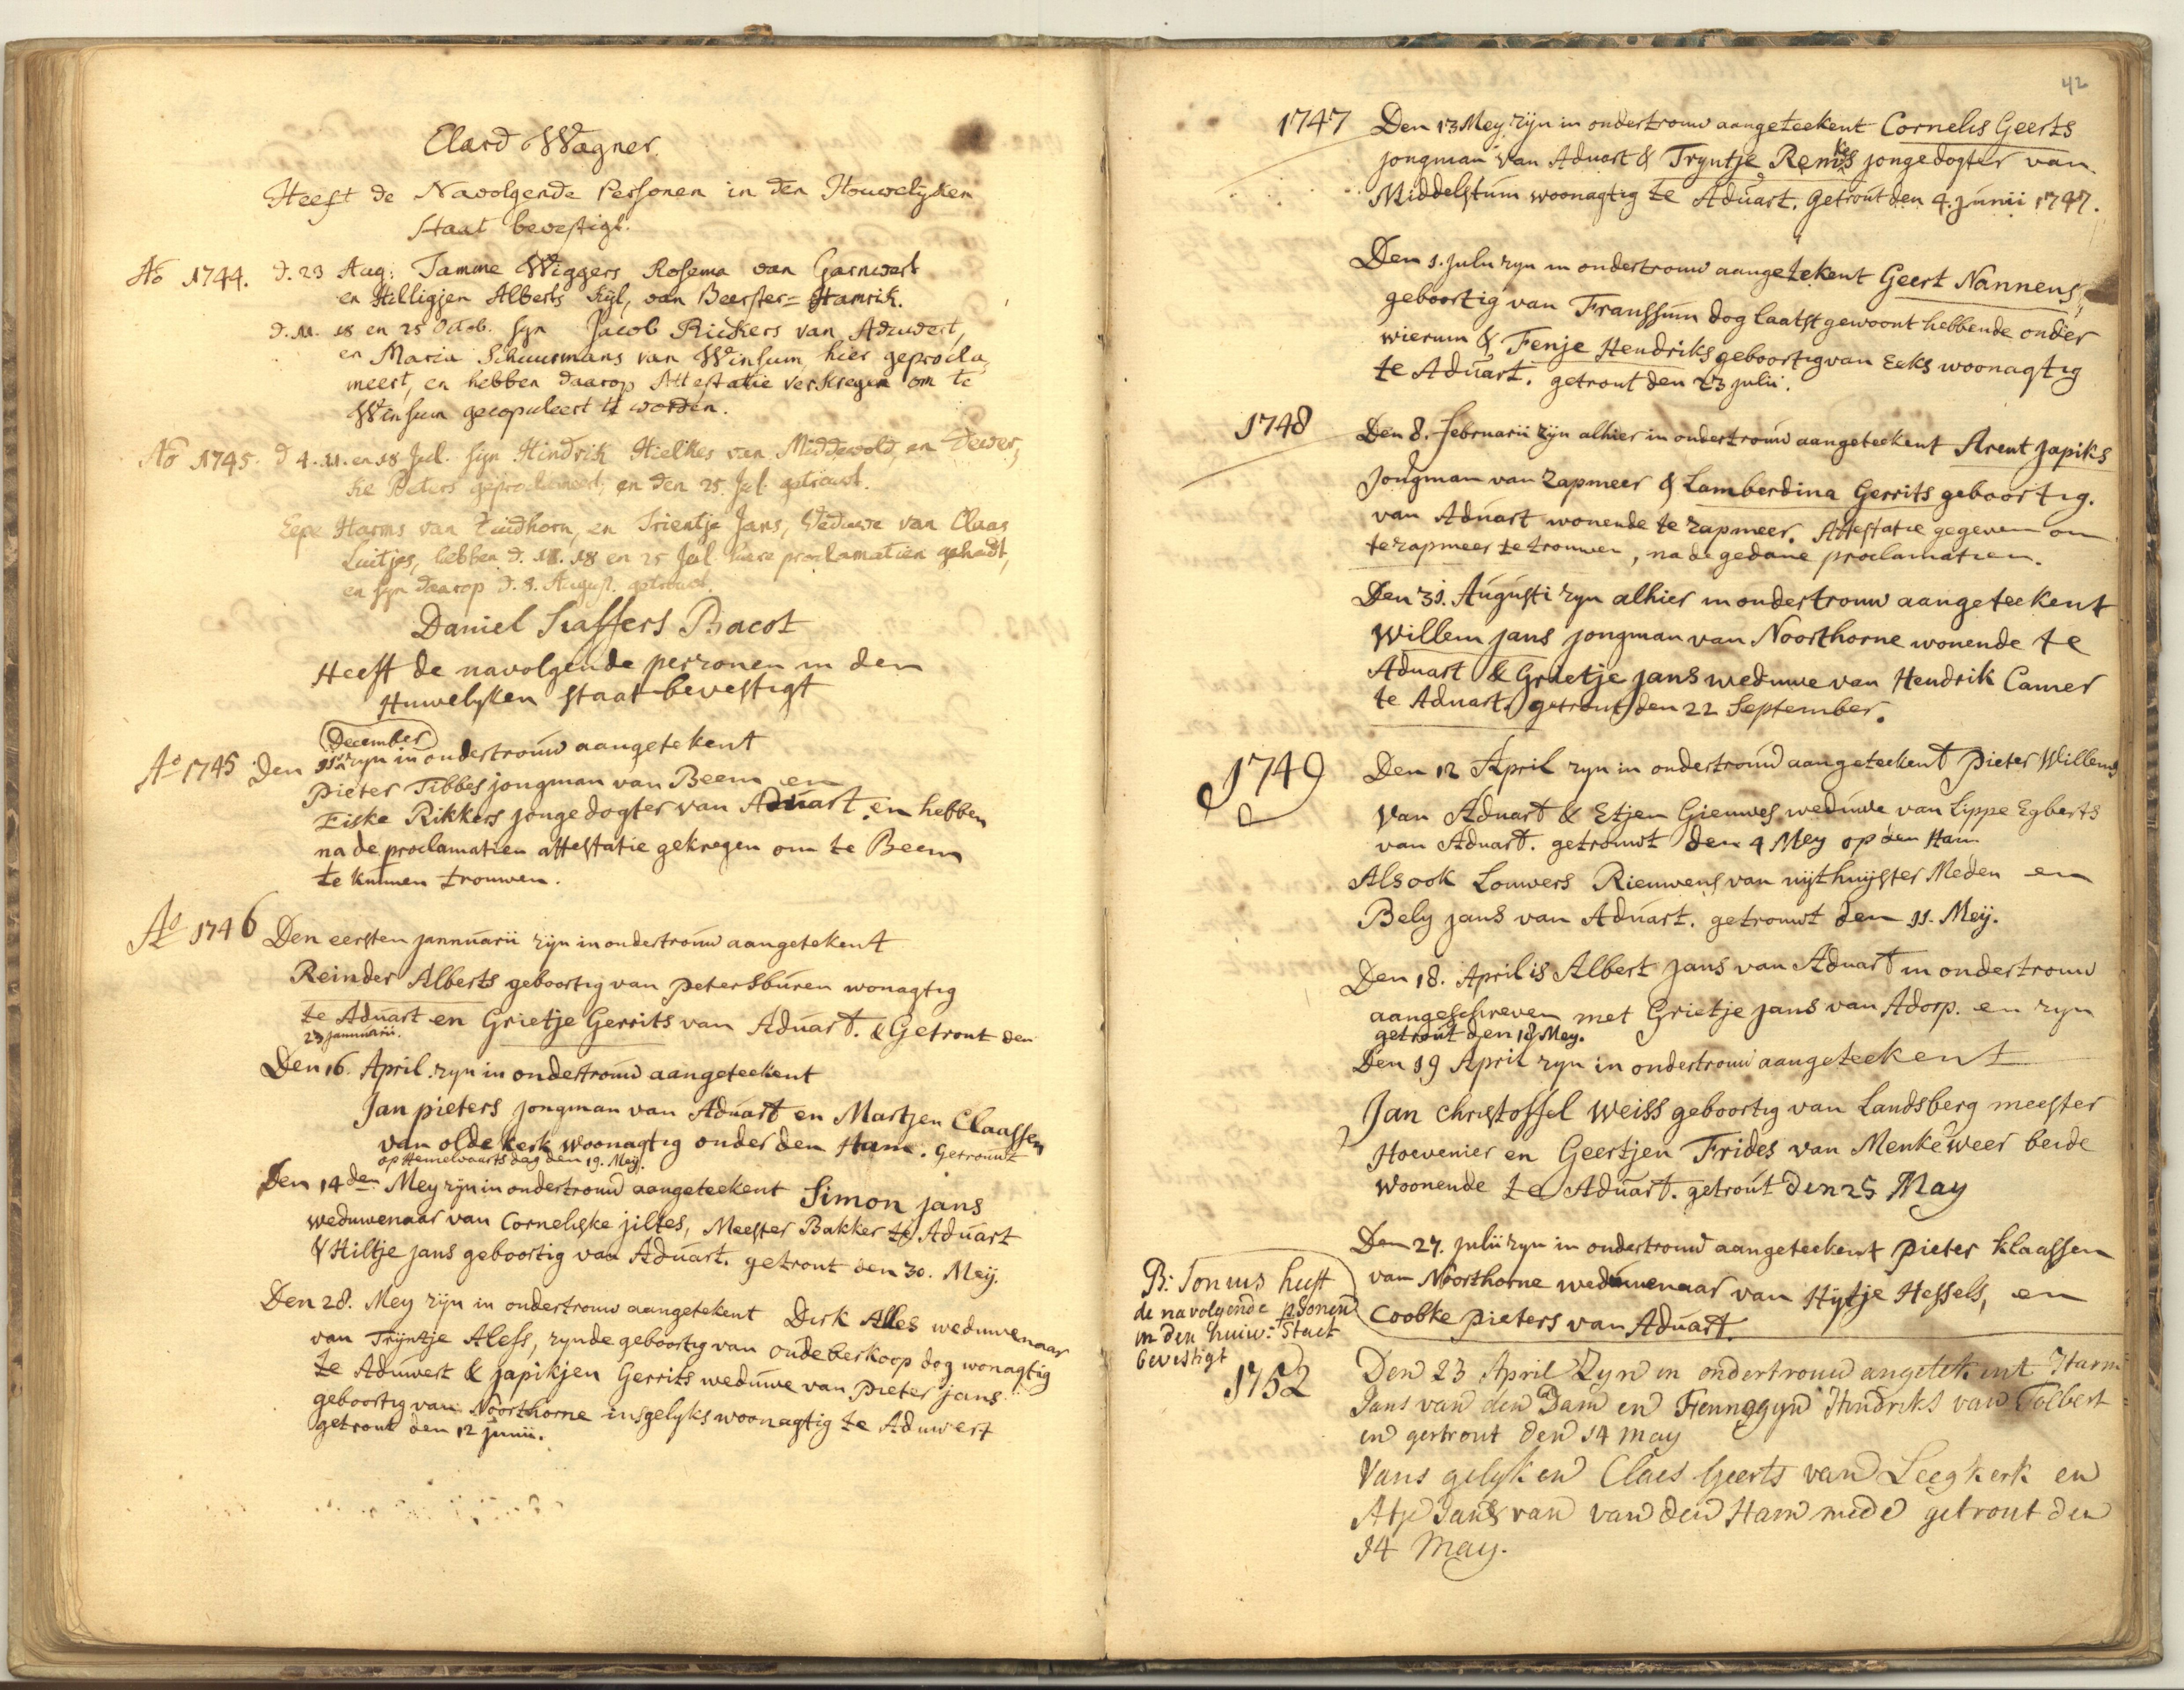 Elard Wagner.
Heeft de Navolgende Personen in den Houwelyken
Staat bevestigt.
Ao 1744. d. 23 Aug: Tamme Wiggers Rosema van Garnwert
en Hilligjen Alberts Kijl, van Beerster=Hamrik.
d. 11. 18 en 25 Octob. syn Jacob Rickers van Aduwert,
en Maria Schuurmans van Winsum, hier geprocla,
meert, en hebben daarop Attestatie verkregen om te
Winsum gecopuleert te worden.
Ao 1745. d 4. 11. en 18 Jul. syn Hindrik Hielkes van Middewold, en Dewer,
ke Peters geproclameert, en den 25. Jul. getrouwt.
Eepe Harms van Zuidhorn, en Trientje Jans, Weduwe van Claas
Luitjes, hebben d. 11. 18 en 25 Jul. hare proclamatien gehadt,
en syn daarop d. 8. August. getrouwt.
Daniel Saffers Bacot
Heeft de navolgende perzonen in den
Huwelyken staat bevestigt
December
Ao 1745 Den zyn in ondertrouw aangetekent
Pieter Tibbes jongman van Beem en
Eiske Rikkers jonge dogter van Aduart en hebben
na de proclamatien attestatie gekregen om te Beem
te kunnen trouwen.
Ao 1746 Den eersten jannuarii zyn in ondertrouw aangetekent
Reinder Alberts geboortig van petersburen wonagtig
te Aduart en Grietje Gerrits van Aduart. & Getrout den
23 jannuarii.
Den 16. April zyn in ondertrouw aangeteekent
Jan pieters jongman van Aduart en Martjen Claassen
van olde kerk woonagtig onder den Ham. Getrouwt
op Hemelvaarts dag den 19. Mey.
Den 14den Mey zyn in ondertrouw aangeteekent Simon jans
weduwenaar van Corneliske jiltes, Meester Bakker te Aduart
& Hiltje jans geboortig van Aduart. getrout den 30. Meÿ.
Den 28. Mey zijn in ondertrouw aangetekent Dirk Alles weduwenaar
van Trijntje Aless, zynde geboortig van oudeberkoop dog wonagtig
te Aduwert & japikjen Gerrits weduwe van Pieter jans
geboortig van Noorthorne insgelyks woonagtig te Aduwert
getrout den 12 junii.
42
1747 Den 13 Mey zijn in ondertrouw aangeteekent Cornelis Geerts
jongman van Aduart & Tryntje Remkes jongedogter van
Middelstum woonagtig te Aduart. Getrout den 4. junii 1747.
Den 1. julii zyn in ondertrouw aangetekent Geert Nannens,
geboortig van Franssum dog laatst gewoont hebbende onder
wierum & Fenje Hendriks geboortig van Eeks woonagtig
te Aduart. getrout den 23 julii.
1748 Den 8. februarii zijn alhier in ondertrouw aangeteekent Arent Japiks
Jongman van Zapmeer & Lamberdina Gerrits geboortig.
van Aduart wonende te Zapmeer. Attestatie gegeven om
te Zapmeer te trouwen, na de gedane proclamatien.
Den 31. Augusti zyn alhier in ondertrouw aangeteekent
Willem jans jongman van Noorthorne wonende te
Aduart & Grietje jans weduwe van Hendrik Camer
te Aduart. getrout den 22 September.
1749 Den 12 April zyn in ondertrouw aangeteekent Pieter Willems
van Aduart & Etjen Gieuwes weduwe van Lippe Egberts
van Aduart. getrouwt den 4 Mey op den Ham
Als ook Louwers Rieuwens van uijthuijster Meden en
Bely jans van Aduart. getrouwt den 11. Meÿ.
Den 18. April is Albert Jans van Aduart in ondertrouw
aangeschreven met Grietje jans van Adorp. en zyn
getrout den 18 Mey.
Den 19 April zyn in ondertrouw aangeteekent
Jan Christoffel Weiss geboortig van Landsberg meester
Hoevenier en Geertjen Frides van Menkeweer beide
woonende te Aduart. getrout den 25 May
Den 27. julii zyn in ondertrouw aangeteekent Pieter klaassen
van Noorthorne weduwenaar van Hyltje Hessels, en
Coobke Pieters van Aduart.
B: Tonnis heeft
de navolgende psonen
in den huiw: Staet
bevestigt
1752 Den 23 April Zyn in ondertrouw angetekent Harm
Jans van den Dam en Fennegyn Hindriks van Tolbert
en gertrout den 14 may
Vans gelyken Claes Geerts van Leegkerk en
Atje Jans van van den Ham mede getrout den
14 May.